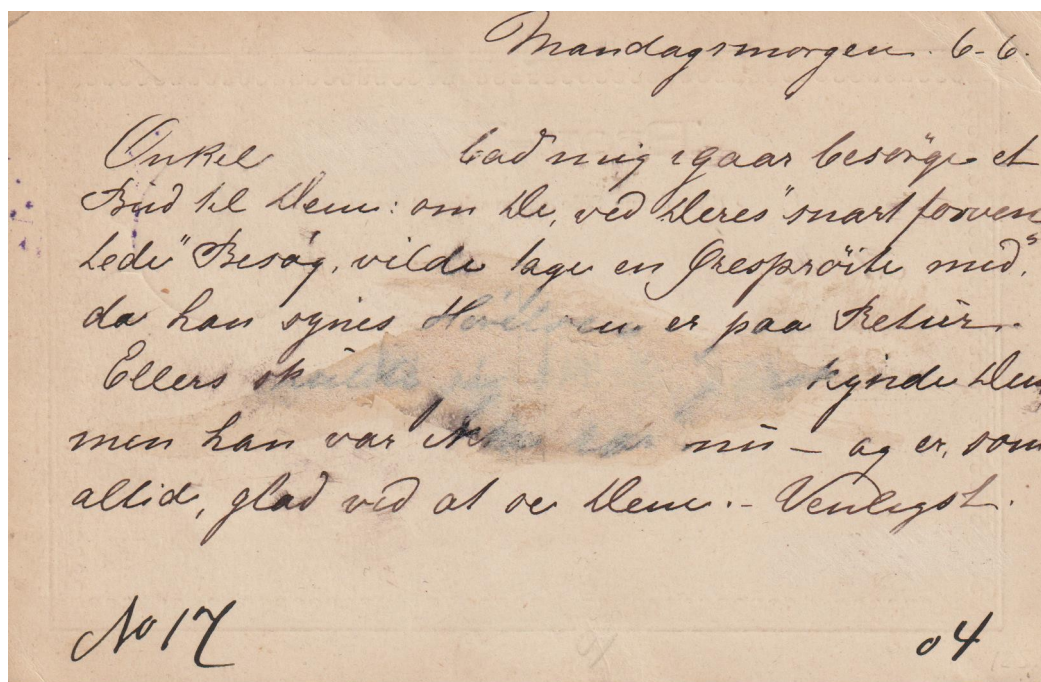 Mandagsmorgen. 6-6.
Onkel bad mig igaar besørge et
Bud til Dem: om De, ved Deres "snart forven
tede" Besøg, vilde tage en Øresprøite med,
da han synes er paa Retur.
Ellers kynde Dem,
men han var nu – og er, som
altid, glad ved at se Dem. – Venligst.
No 17
04